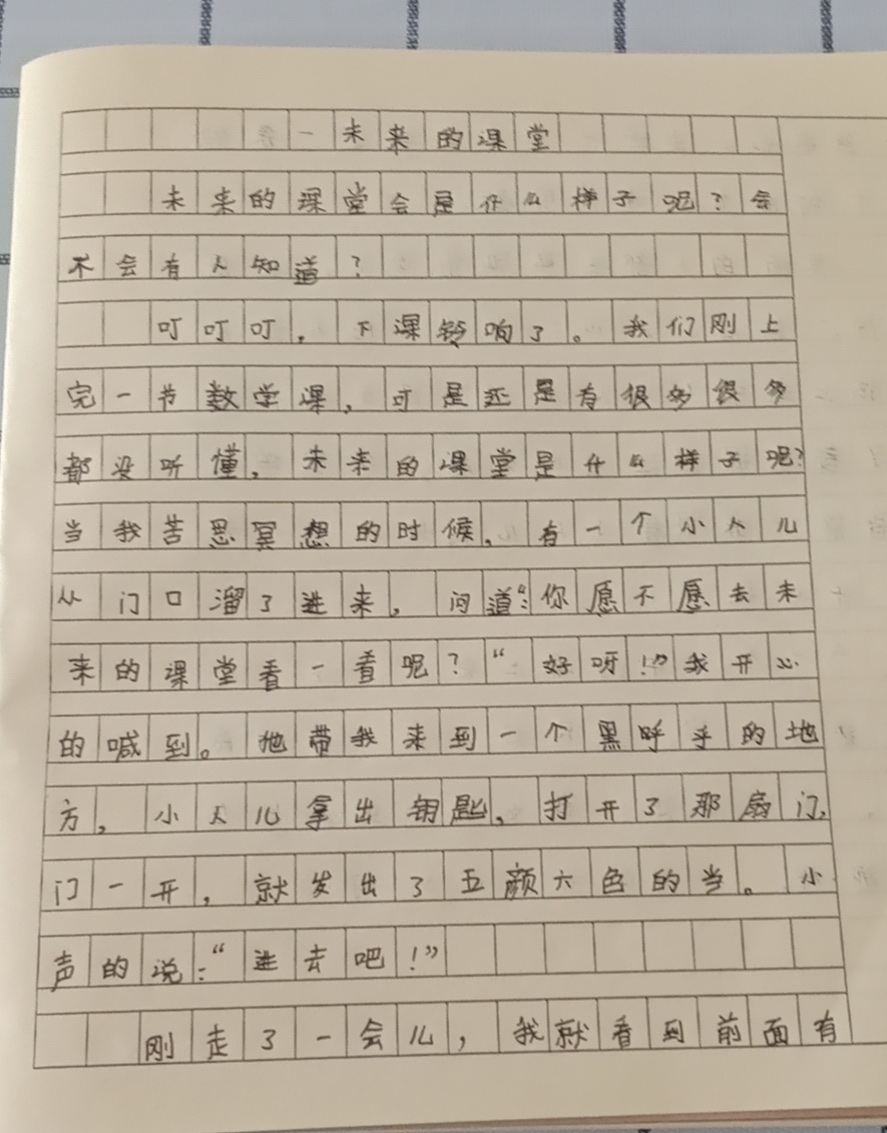 一未来的课堂
未来的课堂会是什么样子呢?会
不会有人知道?
叮叮叮,下课铃响了。我们刚上
完一节数学课,可是还是有很多很多
都没听懂,未来的课堂是什么样子呢?
当我苦思冥想的时候,有一个小人儿
从门口溜了进来,问道:“你愿不愿去未
来的课堂看一看呢?“好呀!”我开心
的喊到。他带我来到一个黑呼乎的地
方,小人儿拿出钥匙,打开了那扇门,
门一开,就发出了五颜六色的当。小
声的说:“进去吧!”
刚走了一会儿,我就看到前面有